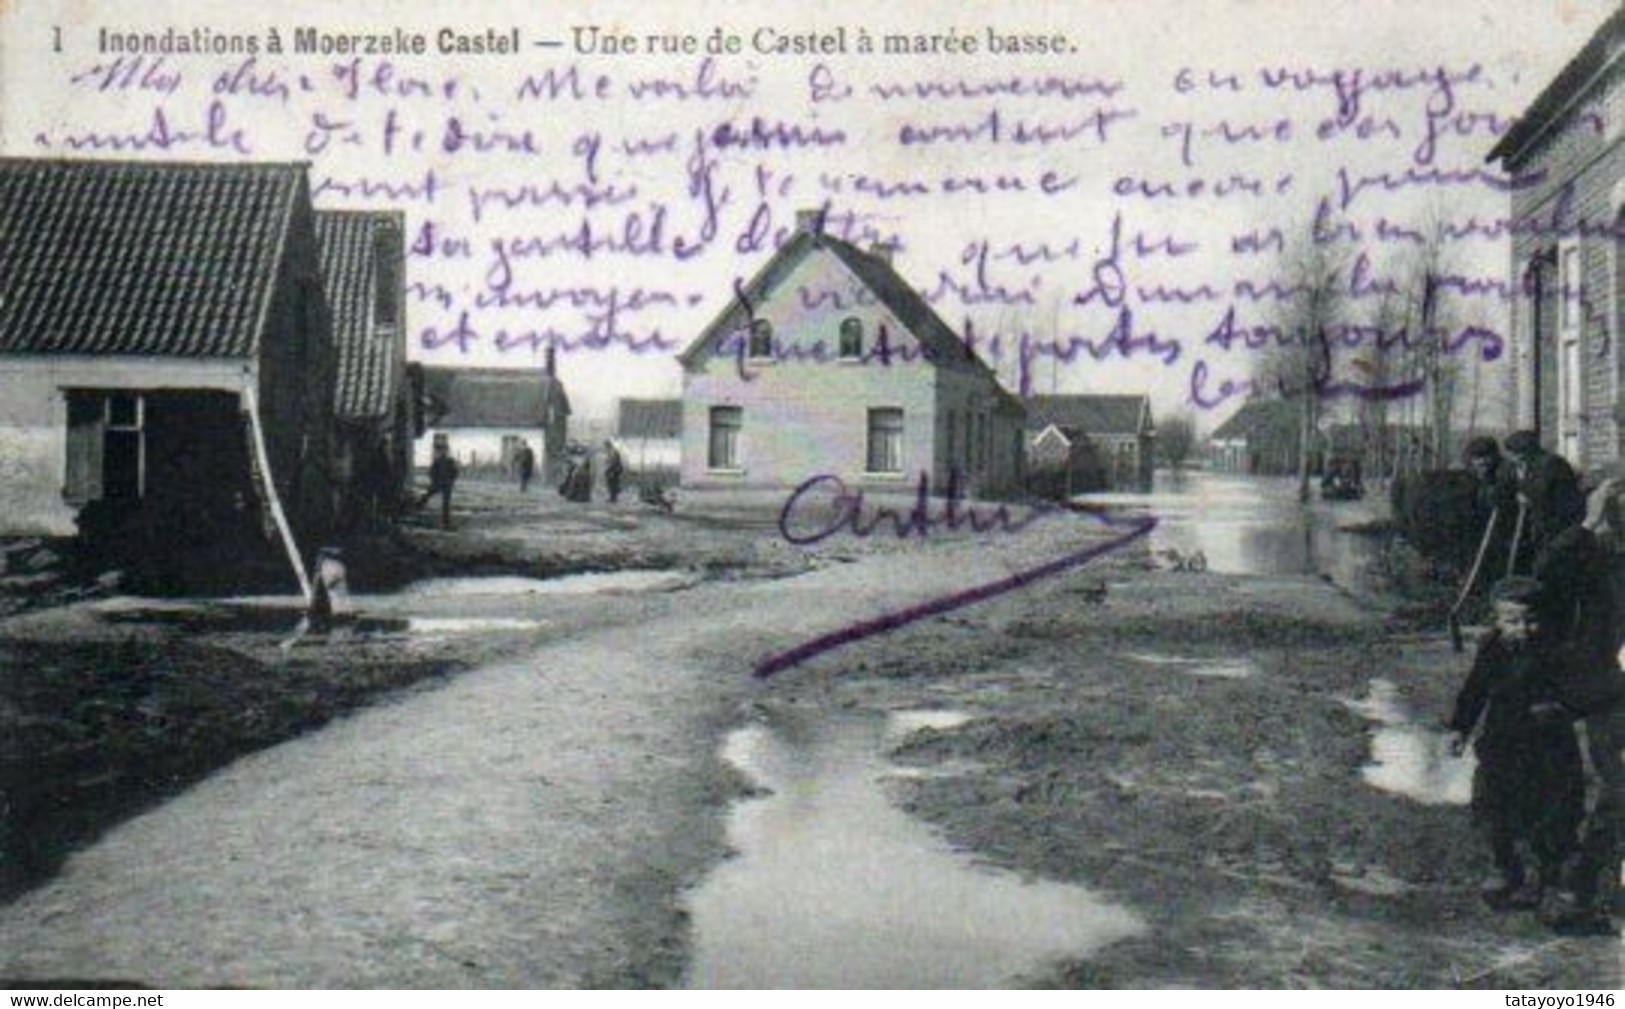 1 Inondations à Moerzeke Castel — Une rue de Castel à marée basse.
Ma chère Flore. Me voilà de nouveau en voyage.
inutile de te dire que je suis content que ces jours
sont passé. Je te remercie encore pour
ta gentille lettre que tu as bien voulu
m'envoyer. Je
et espère que tu te portes toujours
bien
Arthur
delcampe.net
tatayoyo1946